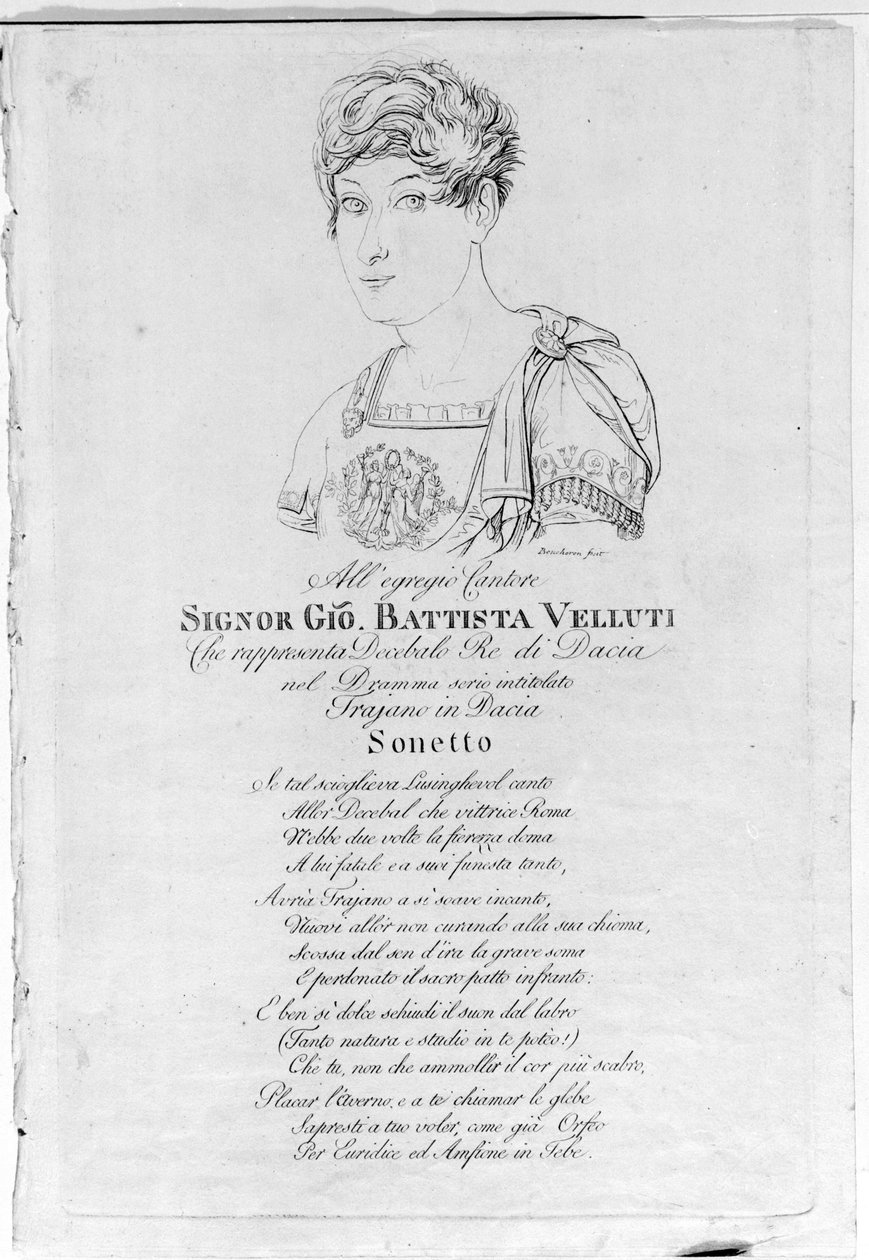 Boucheron fecit
All' egregio Cantore
SIGNOR GIO. BATTISTA VELLUTI
Che rappresenta Decebalo Re di Dacia
nel Dramma serio intitolato
Trajano in Dacia
Sonetto
Se tal scioglieva Lusinghevol canto
Allor Decebal che vittrice Roma
N'ebbe due volte la fierezza doma
A lui fatale e a suoi funesta tanto,
Avria Trajano a sì soave incanto,
Nuovi allòr non curando alla sua chioma,
Scossa dal sen d'ira la grave soma
E perdonato il sacro patto infranto:
E ben sì dolce schiudi il suon dal labro
(Tanto natura e studio in te potèo!)
Chè tu, non che ammollir il cor più scabro,
Placar l'averno, e a te chiamar le glebe
Sapresti a tuo voler, come già Orfeo
Per Euridice ed Amfione in Tebe.